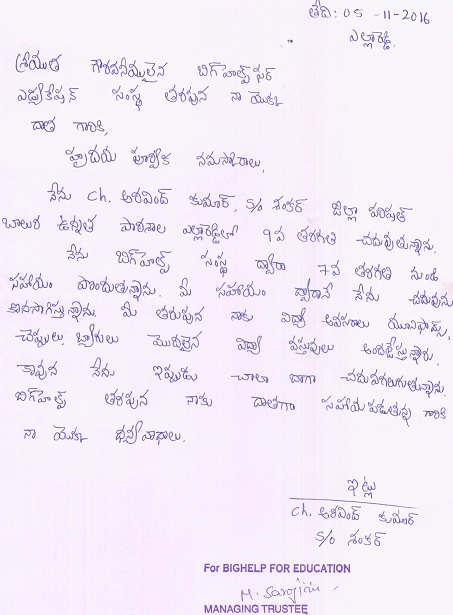 తేది: 05-11-2016
ఎల్లారెడ్డి.
శ్రీయుత గౌరవనీయులైన బిగ్‌హెల్ప్ ఫర్
ఎడ్యుకేషన్ సంస్థ తరపున నా యొక్క
దాత గారికి,
హృదయ పూర్వక నమస్కారాలు,
నేను Ch. అరవింద్ కుమార్, S/o శంకర్ జిల్లా పరిషత్
బాలుర ఉన్నత పాఠశాల ఎల్లారెడ్డిలో 9వ తరగతి చదువుతున్నాను.
నేను బిగ్‌హెల్ప్ సంస్థ ద్వారా 7వ తరగతి నుండి
సహాయం పొందుతున్నాను. మీ సహాయం ద్వారానే నేను చదువును
కొనసాగిస్తున్నాను. మీ తరుపున నాకు విద్యా అవసరాలు యూనిఫామ్స్,
చెప్పులు, బ్యాగులు మొదలైన విద్యా వస్తువులు అందజేస్తున్నారు.
కావున నేను ఇప్పుడు చాలా బాగా చదువగలుగుతున్నాను.
బిగ్‌హెల్ప్ తరపున నాకు దాతగా సహాయపడుతున్న గారికి
నా యొక్క ధన్యవాదాలు.
ఇట్లు
Ch. అరవింద్ కుమార్
S/o శంకర్
For BIGHELP FOR EDUCATION
MANAGING TRUSTEE